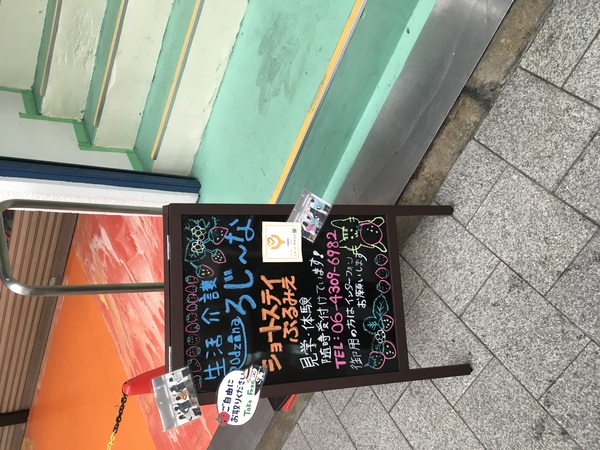 生活介護
rodzina
ろじ〜な
ショートステイ
ぷるみえ
見学・体験
随時受付けています!
TEL:06-4309-6982
御用の方はインターフォン
お願いします
ご自由に
お取りください
Take Free